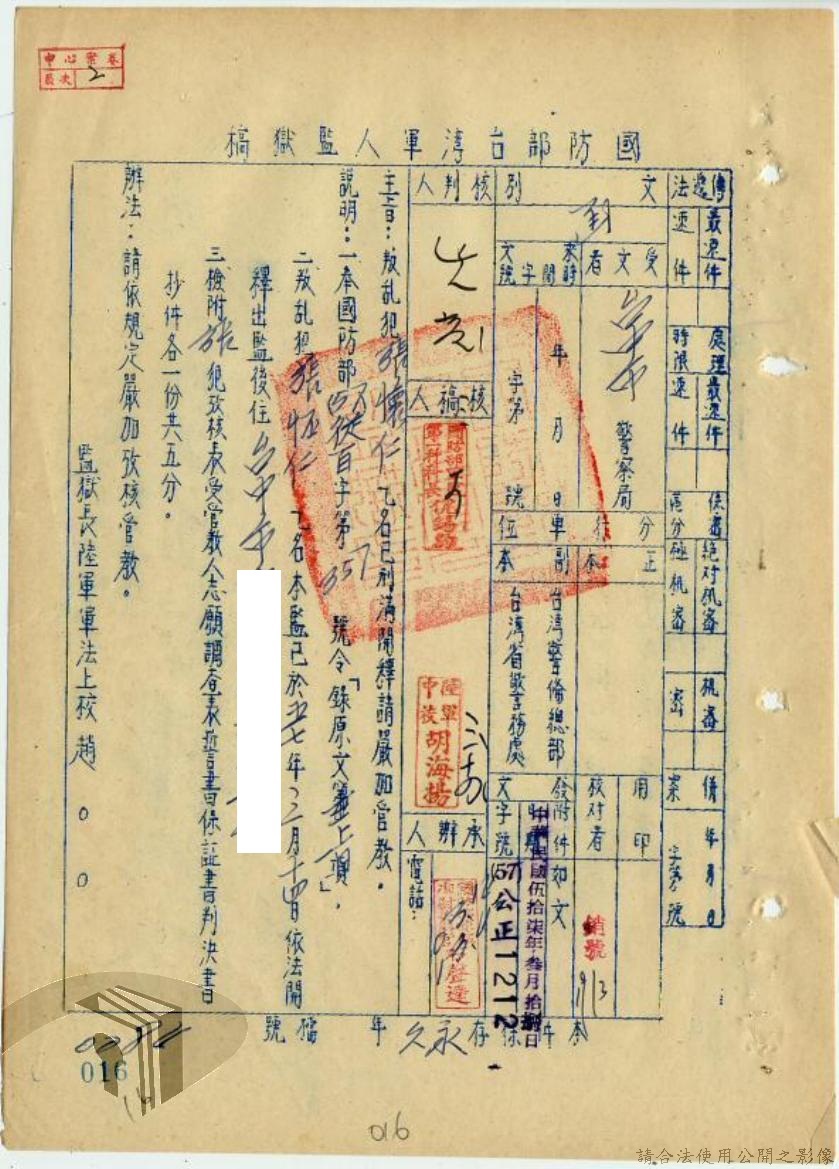 中心案卷
最次 2
國防部台灣軍人監獄稿
傳遞法
最速件
速件
處理時限
最速件
速件
保密區分
絕对机密
極机密
机密
密
案情
年 月 日
字第 號
文別
函
受文者
台中市警察局
來文時間字號
年 月 日
字第 號
分行單位
正本
副本
台灣警備總部
台灣省警務處
用印
核对者
發文附件字號
附件如文
中華民國伍拾柒年叁月拾捌日
(57)公正1212
銷號
核判人
核稿人
陸軍中校胡海揚
承辦人
電話:
主旨:叛乱犯張懷仁乙名已刑滿開釋請嚴加管教。
說明:一奉國防部(57)从百字第357號令「錄原文至上項」,
二叛乱犯張恆仁乙名本監已於五七年三月十四日依法開
釋出監後住台中市
三檢附張犯攷核表受管教人志願調查表誓書保証書判決書
抄件各一份共五分。
辦法:請依規定嚴加攷核管教。
監獄長陸軍軍法上校趙○○
本件保存永久 年 檔號
016
016
請合法使用公開之影像